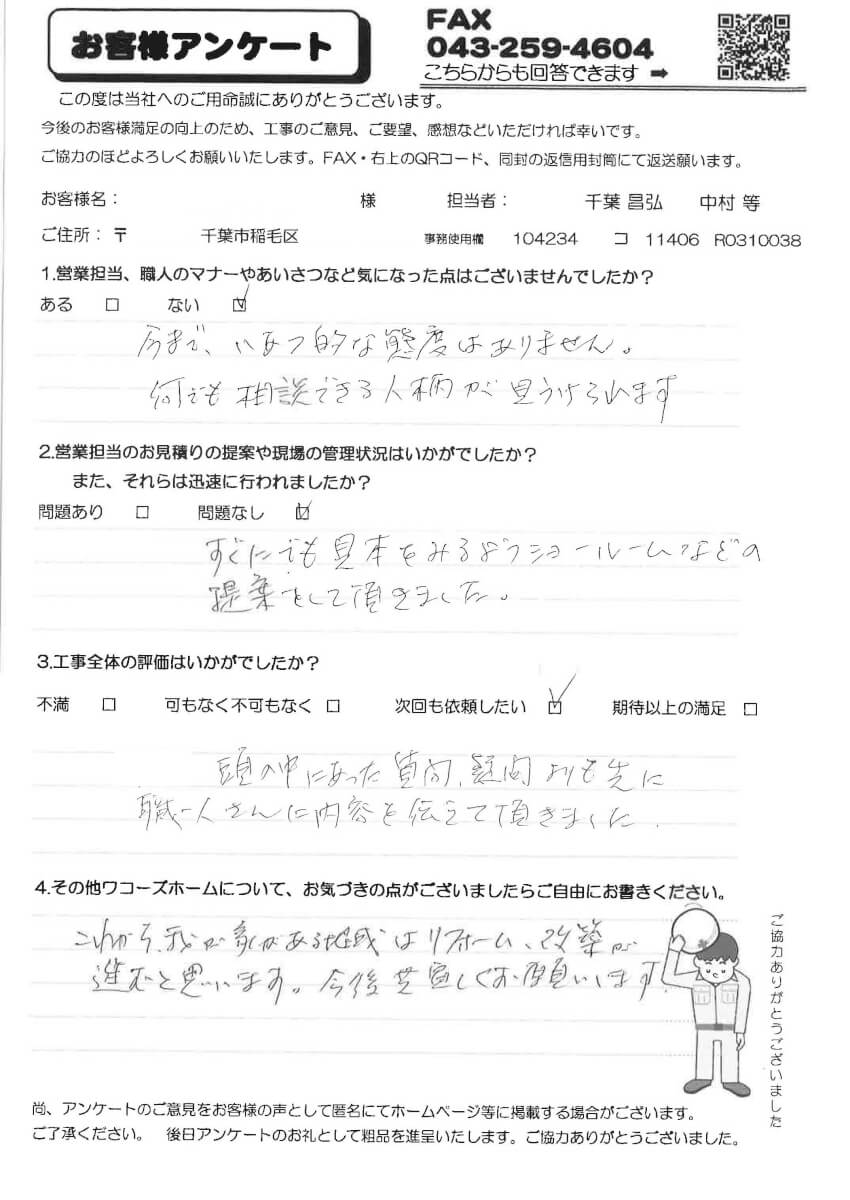 お客様アンケート
FAX
043-259-4604
こちらからも回答できます ➡
この度は当社へのご用命誠にありがとうございます。
今後のお客様満足の向上のため、工事のご意見、ご要望、感想などいただければ幸いです。
ご協力のほどよろしくお願いいたします。FAX・右上のQRコード、同封の返信用封筒にて返送願います。
お客様名： 様 担当者： 千葉 昌弘 中村 等
ご住所：〒 千葉市稲毛区 事務使用欄 104234 コ 11406 R0310038
1.営業担当、職人のマナーやあいさつなど気になった点はございませんでしたか？
ある □ ない ☑
今まで、いあつ的な態度はありません。
何でも相談できる人柄が見うけられます
2.営業担当のお見積りの提案や現場の管理状況はいかがでしたか？
また、それらは迅速に行われましたか？
問題あり □ 問題なし ☑
すぐにでも見本をみるようショールームなどの
提案をして頂きました。
3.工事全体の評価はいかがでしたか？
不満 □ 可もなく不可もなく □ 次回も依頼したい ☑ 期待以上の満足 □
頭の中にあった質問、疑問よりも先に
職人さんに内容を伝えて頂きました.
4.その他ワコーズホームについて、お気づきの点がございましたらご自由にお書きください。
これから、我が家がある地域はリフォーム、改築が
進むと思います。今後共宜しくお願いします.
ご協力ありがとうございました
尚、アンケートのご意見をお客様の声として匿名にてホームページ等に掲載する場合がございます。
ご了承ください。 後日アンケートのお礼として粗品を進呈いたします。ご協力ありがとうございました。